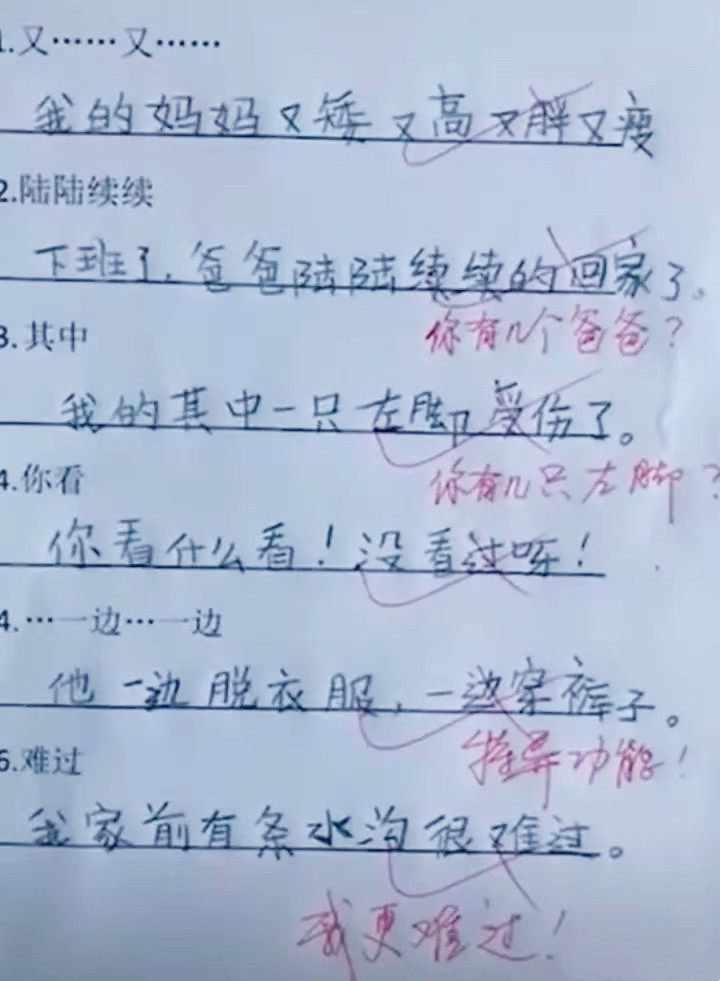 1.又……又……
我的妈妈又矮又高又胖又瘦
2.陆陆续续
下班了，爸爸陆陆续续的回家了。
你有几个爸爸？
3.其中
我的其中一只左脚受伤了。
你有几只左脚？
4.你看
你看什么看！没看过呀！
4.…一边…一边
他一边脱衣服，一边穿裤子。
特异功能！
6.难过
我家前有条水沟很难过。
我更难过！